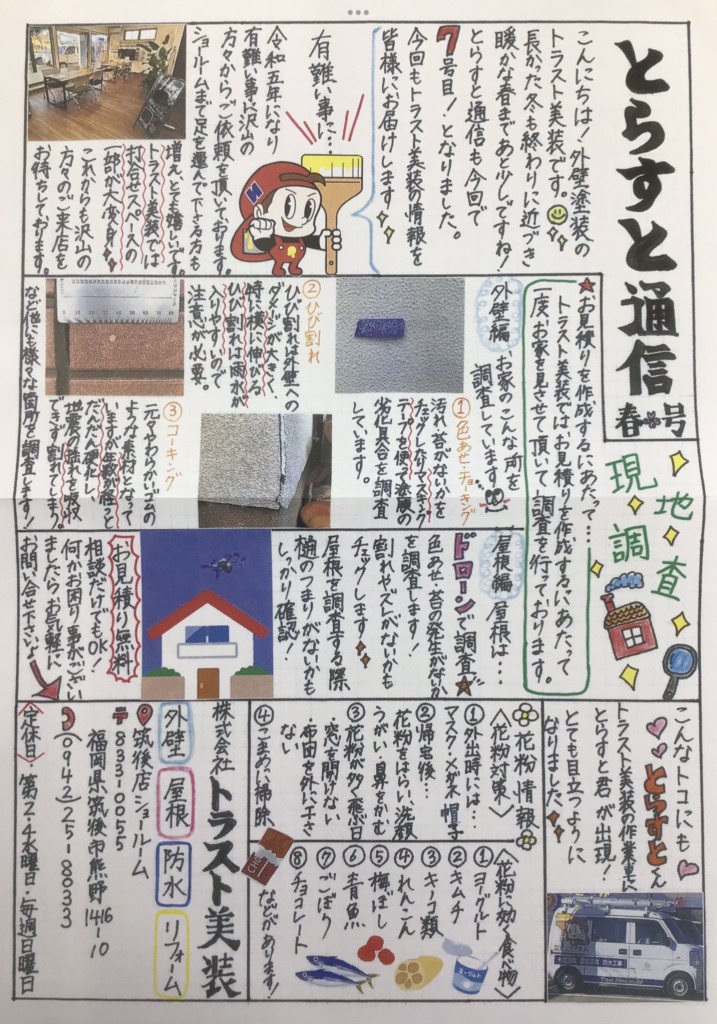 とらすと通信
春号
こんにちは！外壁塗装の
トラスト美装です。
長かった冬も終わりに近づき
暖かな春まであと少しですね！
とらすと通信も今回で
7号目！となりました。
今回もトラスト美装の情報を
皆様にお届けします
有難い事に…
令和五年になり
有難い事に沢山の
方々からご依頼を頂いております。
ショールームまで足を運んで下さる方も
増えとても嬉しいです。
トラスト美装では
打合せスペースの
一部が大変身
これからも沢山の
方々のご来店を
お待ちしております。
現地調査
★お見積りを作成するにあたって…
トラスト美装ではお見積りを作成するにあたって
一度、お家を見させて頂いて調査を行っております。
外壁編
お家のこんな所を
調査しています
①色あせ・チョーキング
汚れ・苔がないかを
チェックしたりマスキング
テープを使って塗膜の
劣化具合を調査
しています。
②ひび割れ
ひび割れは外壁への
ダメージが大きく、
特に横に伸びる
ひび割れは雨水が
入りやすいので
注意が必要。
③コーキング
元々やわらかいゴムの
ような素材となって
いますが年数が経つと
だんだん硬化し、
地震の揺れを吸収
できず割れてしまう。
など他にも様々な箇所を調査します！
屋根編
屋根は…
ドローンで調査★
色あせ・苔の発生がないか
を調査します！
割れやズレがないかも
チェックします
屋根を調査する際
樋のつまりがないかも
しっかり確認！
お見積り無料
相談だけでもOK！
何かお困り事がござい
ましたら、お気軽に
お問い合せ下さい
こんなトコにも
とらすとくん
トラスト美装の作業車に
とらすと君が出現！
とても目立つように
なりました
花粉情報
〈花粉対策〉
①外出時には…
マスク・メガネ・帽子
②帰宅後…
花粉をはらい、洗顔
うがい・鼻をかむ
③花粉が多く飛ぶ日
・窓を開けない
・布団を外に干さ
ない
④こまめに掃除
〈花粉に効く食べ物〉
①ヨーグルト
②キムチ
③キノコ類
④れんこん
⑤梅ぼし
⑥青魚
⑦ごぼう
⑧チョコレート
などがあります！
ヨーグルト
株式会社トラスト美装
外壁
屋根
防水
リフォーム
筑後店ショールーム
〒833-0055
福岡県筑後市熊野1416-10
(0942)25-8033
〈定休日〉・第2・4水曜日・毎週日曜日